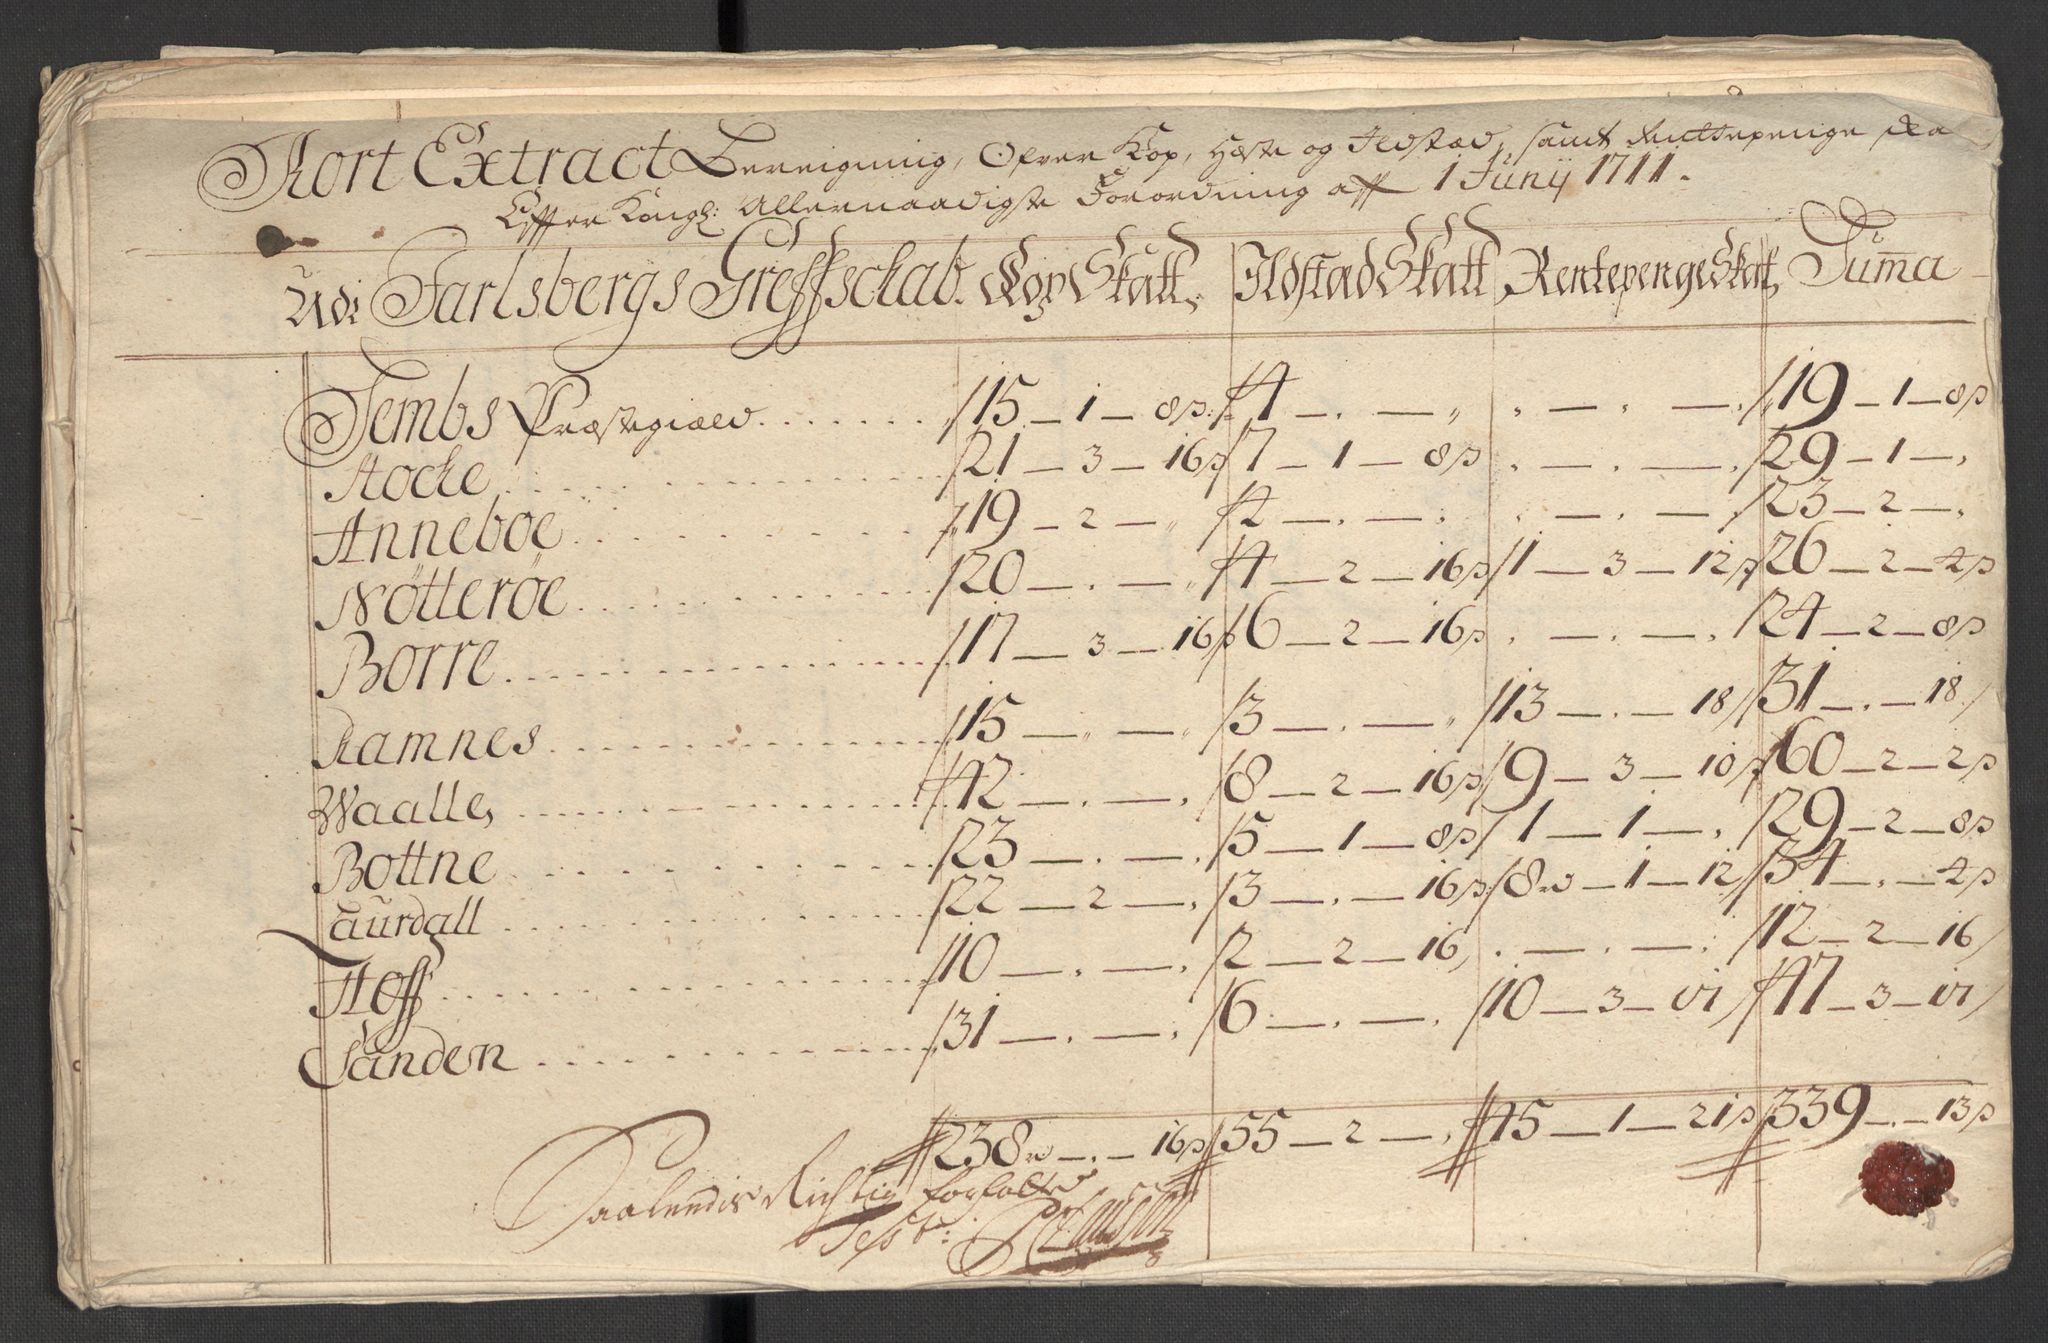 Kort Extract Bereigning, Ofver Kop, Hæste og Ildstæd, samt Rentepenge Ska
Effter Kongl: Allernaadigste Forordning aff 1 Junij 1711.
Udi Jarlsbergs Greffschab. Kop Skatt, Ildstæd Skatt Rentepenge Skatt, Summa
Sembs Præstegiæld . . . . . . . 15 — 1 — 8 s: 4 — . — „ . — . — . 19 — 1 — 8 s
Stocke . . . . . . . 21 — 3 — 16 s 7 — 1 — 8 s . — . — . 29 — 1 — .
Anneboe . . . . . . . 19 — 2 — „ 4 — . — . . — . — . 23 — 2 — .
Nötteröe . . . . . . . 20 — . — „ 4 — 2 — 16 s 1 — 3 — 12 s 26 — 2 — 4 s
Borre . . . . . . . 17 — 3 — 16 s 6 — 2 — 16 s . — . — . 24 — 2 — 8 s
Ramnes . . . . . . . 15 — „ — „ 3 — . — „ 13 — . — 18 31 — . — 18
Waalle, . . . . . . . 42 — . — . 8 — 2 — 16 s 9 — 3 — 10 s 60 — 2 — 2 s
Bottne . . . . . . . 23 — . — . 5 — 1 — 8 s 1 — 1 — . 29 — 2 — 8 s
Laurdall . . . . . . . 22 — 2 — . 3 — . — 16 s 8 — 1 — 12 34 — . — 4 s
Hoff . . . . . . . 10 — . — . 2 — 2 — 16 . — . — . 12 — 2 — 16
Sanden . . . . . . . 31 — . — . 6 — . — . 10 — 3 — 17 47 — 3 — 17
238 — . — 16 s 55 — 2 — . 45 — 1 — 21 s 339 — . — 13 s
Saaledis Richtig forfatted
Test: